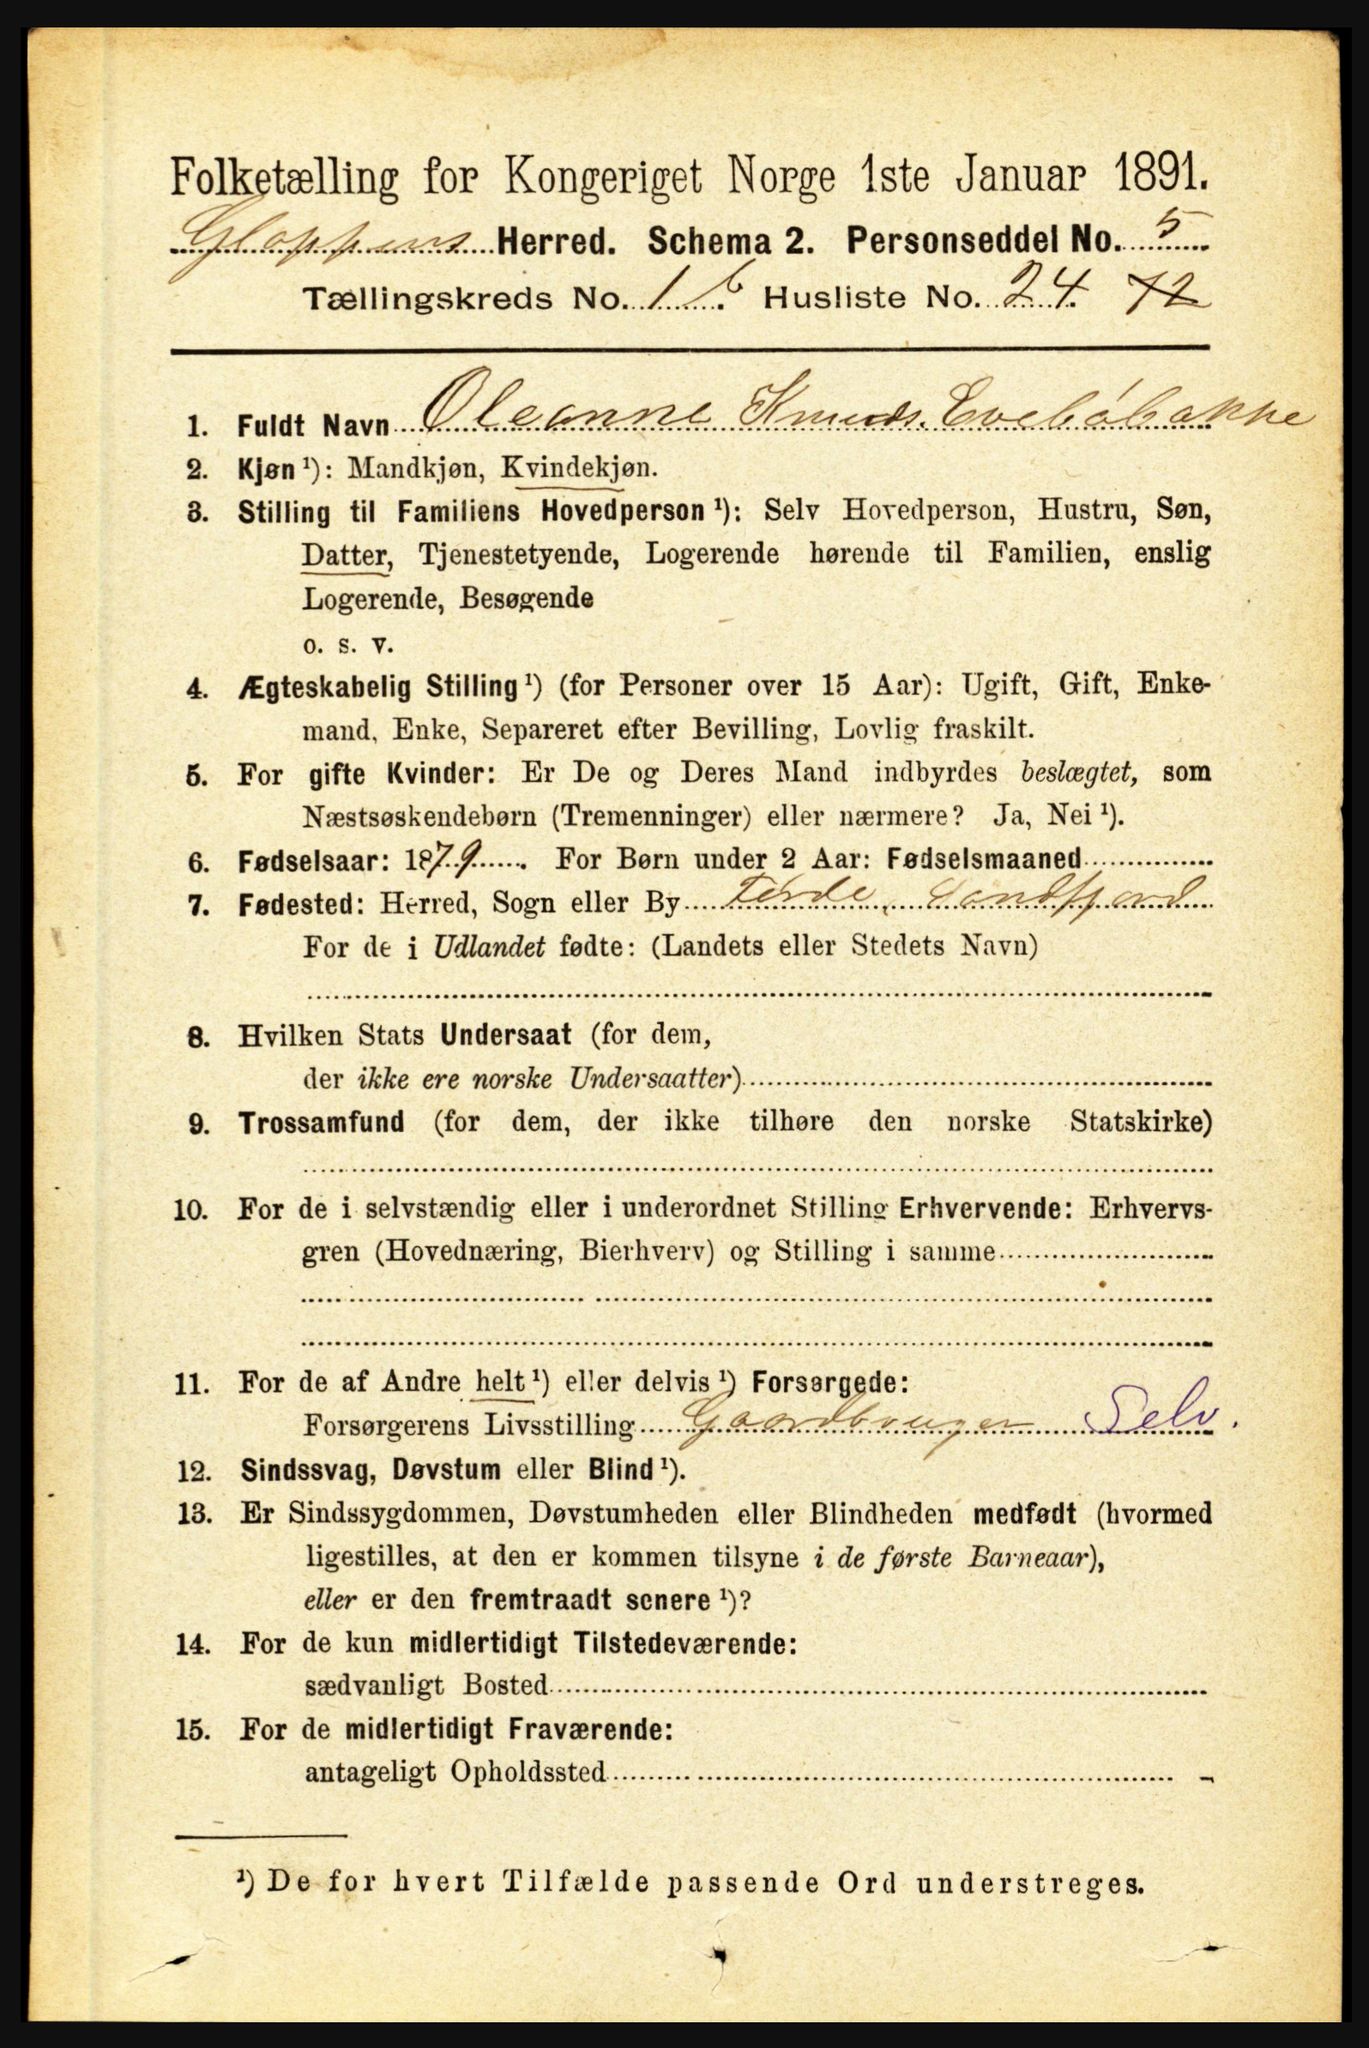 Folketælling for Kongeriget Norge 1ste Januar 1891.
Gloppens Herred. Schema 2. Personseddel No. 5
Tællingskreds No. 1 b. Husliste No. 24. 12
1. Fuldt Navn Oleanne Knuds. Evebøbakke
2. Kjøn ¹): Mandkjøn, Kvindekjøn.
3. Stilling til Familiens Hovedperson ¹): Selv Hovedperson, Hustru, Søn,
Datter, Tjenestetyende, Logerende hørende til Familien, enslig
Logerende, Besøgende
o. s. v.
4. Ægteskabelig Stilling ¹) (for Personer over 15 Aar): Ugift, Gift, Enke-
mand, Enke, Separeret efter Bevilling, Lovlig fraskilt.
5. For gifte Kvinder: Er De og Deres Mand indbyrdes beslægtet, som
Næstsøskendebørn (Tremenninger) eller nærmere? Ja, Nei ¹).
6. Fødselsaar: 1879. For Børn under 2 Aar: Fødselsmaaned
7. Fødested: Herred, Sogn eller By Førde, Søndfjord
For de i Udlandet fødte: (Landets eller Stedets Navn)
8. Hvilken Stats Undersaat (for dem,
der ikke ere norske Undersaatter)
9. Trossamfund (for dem, der ikke tilhøre den norske Statskirke)
10. For de i selvstændig eller i underordnet Stilling Erhvervende: Erhvervs-
gren (Hovednæring, Bierhverv) og Stilling i samme
11. For de af Andre helt ¹) eller delvis ¹) Forsørgede:
Forsørgerens Livsstilling Gaardbruger Selv.
12. Sindssvag, Døvstum eller Blind ¹).
13. Er Sindssygdommen, Døvstumheden eller Blindheden medfødt (hvormed
ligestilles, at den er kommen tilsyne i de første Barneaar),
eller er den fremtraadt senere ¹)?
14. For de kun midlertidigt Tilstedeværende:
sædvanligt Bosted
15. For de midlertidigt Fraværende:
antageligt Opholdssted
¹) De for hvert Tilfælde passende Ord understreges.